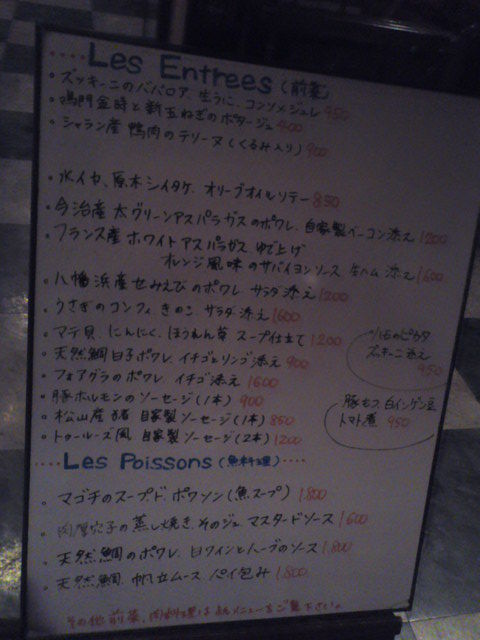 Les Entrees (前菜)
・ズッキーニのババロア、生うに、コンソメジュレ 950
・鳴門金時と新玉ねぎのポタージュ 400
・シャラン産 鴨肉のテリーヌ(くるみ入り) 900
・水イカ、原木シイタケ、オリーブオイルソテー 850
・今治産 太グリーンアスパラガスのポワレ、自家製ベーコン添え 1200
・フランス産 ホワイトアスパラガス ゆで上げ
オレンジ風味のサバイヨンソース 生ハム 添え 1600
・八幡浜産せみえびのポワレ サラダ添え 1200
・うさぎのコンフィ、きのこ、サラダ添え 1600
・マテ貝、にんにく、ほうれん草 スープ仕立て 1200
・天然鯛白子ポワレ、イチゴとリンゴ添え 900
・フォアグラのポワレ イチゴ添え 1600
・豚ホルモンのソーセージ(1本) 900
・松山産 自家製 ソーセージ(1本) 850
・トゥールーズ風 自家製ソーセージ(2本) 1200
のピカタ
ズッキーニ添え
950
豚モツ、白インゲン豆
トマト煮 950
Les Poissons (魚料理)
・マゴチのスープド、ポワソン(魚スープ) 1.800
・肉厚穴子の蒸し焼き、そのジュ マスタードソース 1600
・天然鯛のポワレ、白ワインとハーブのソース 1.800
・天然鯛、帆立ムース パイ包み 1.800
その他 前菜、肉料理は メニューをご覧下さい。